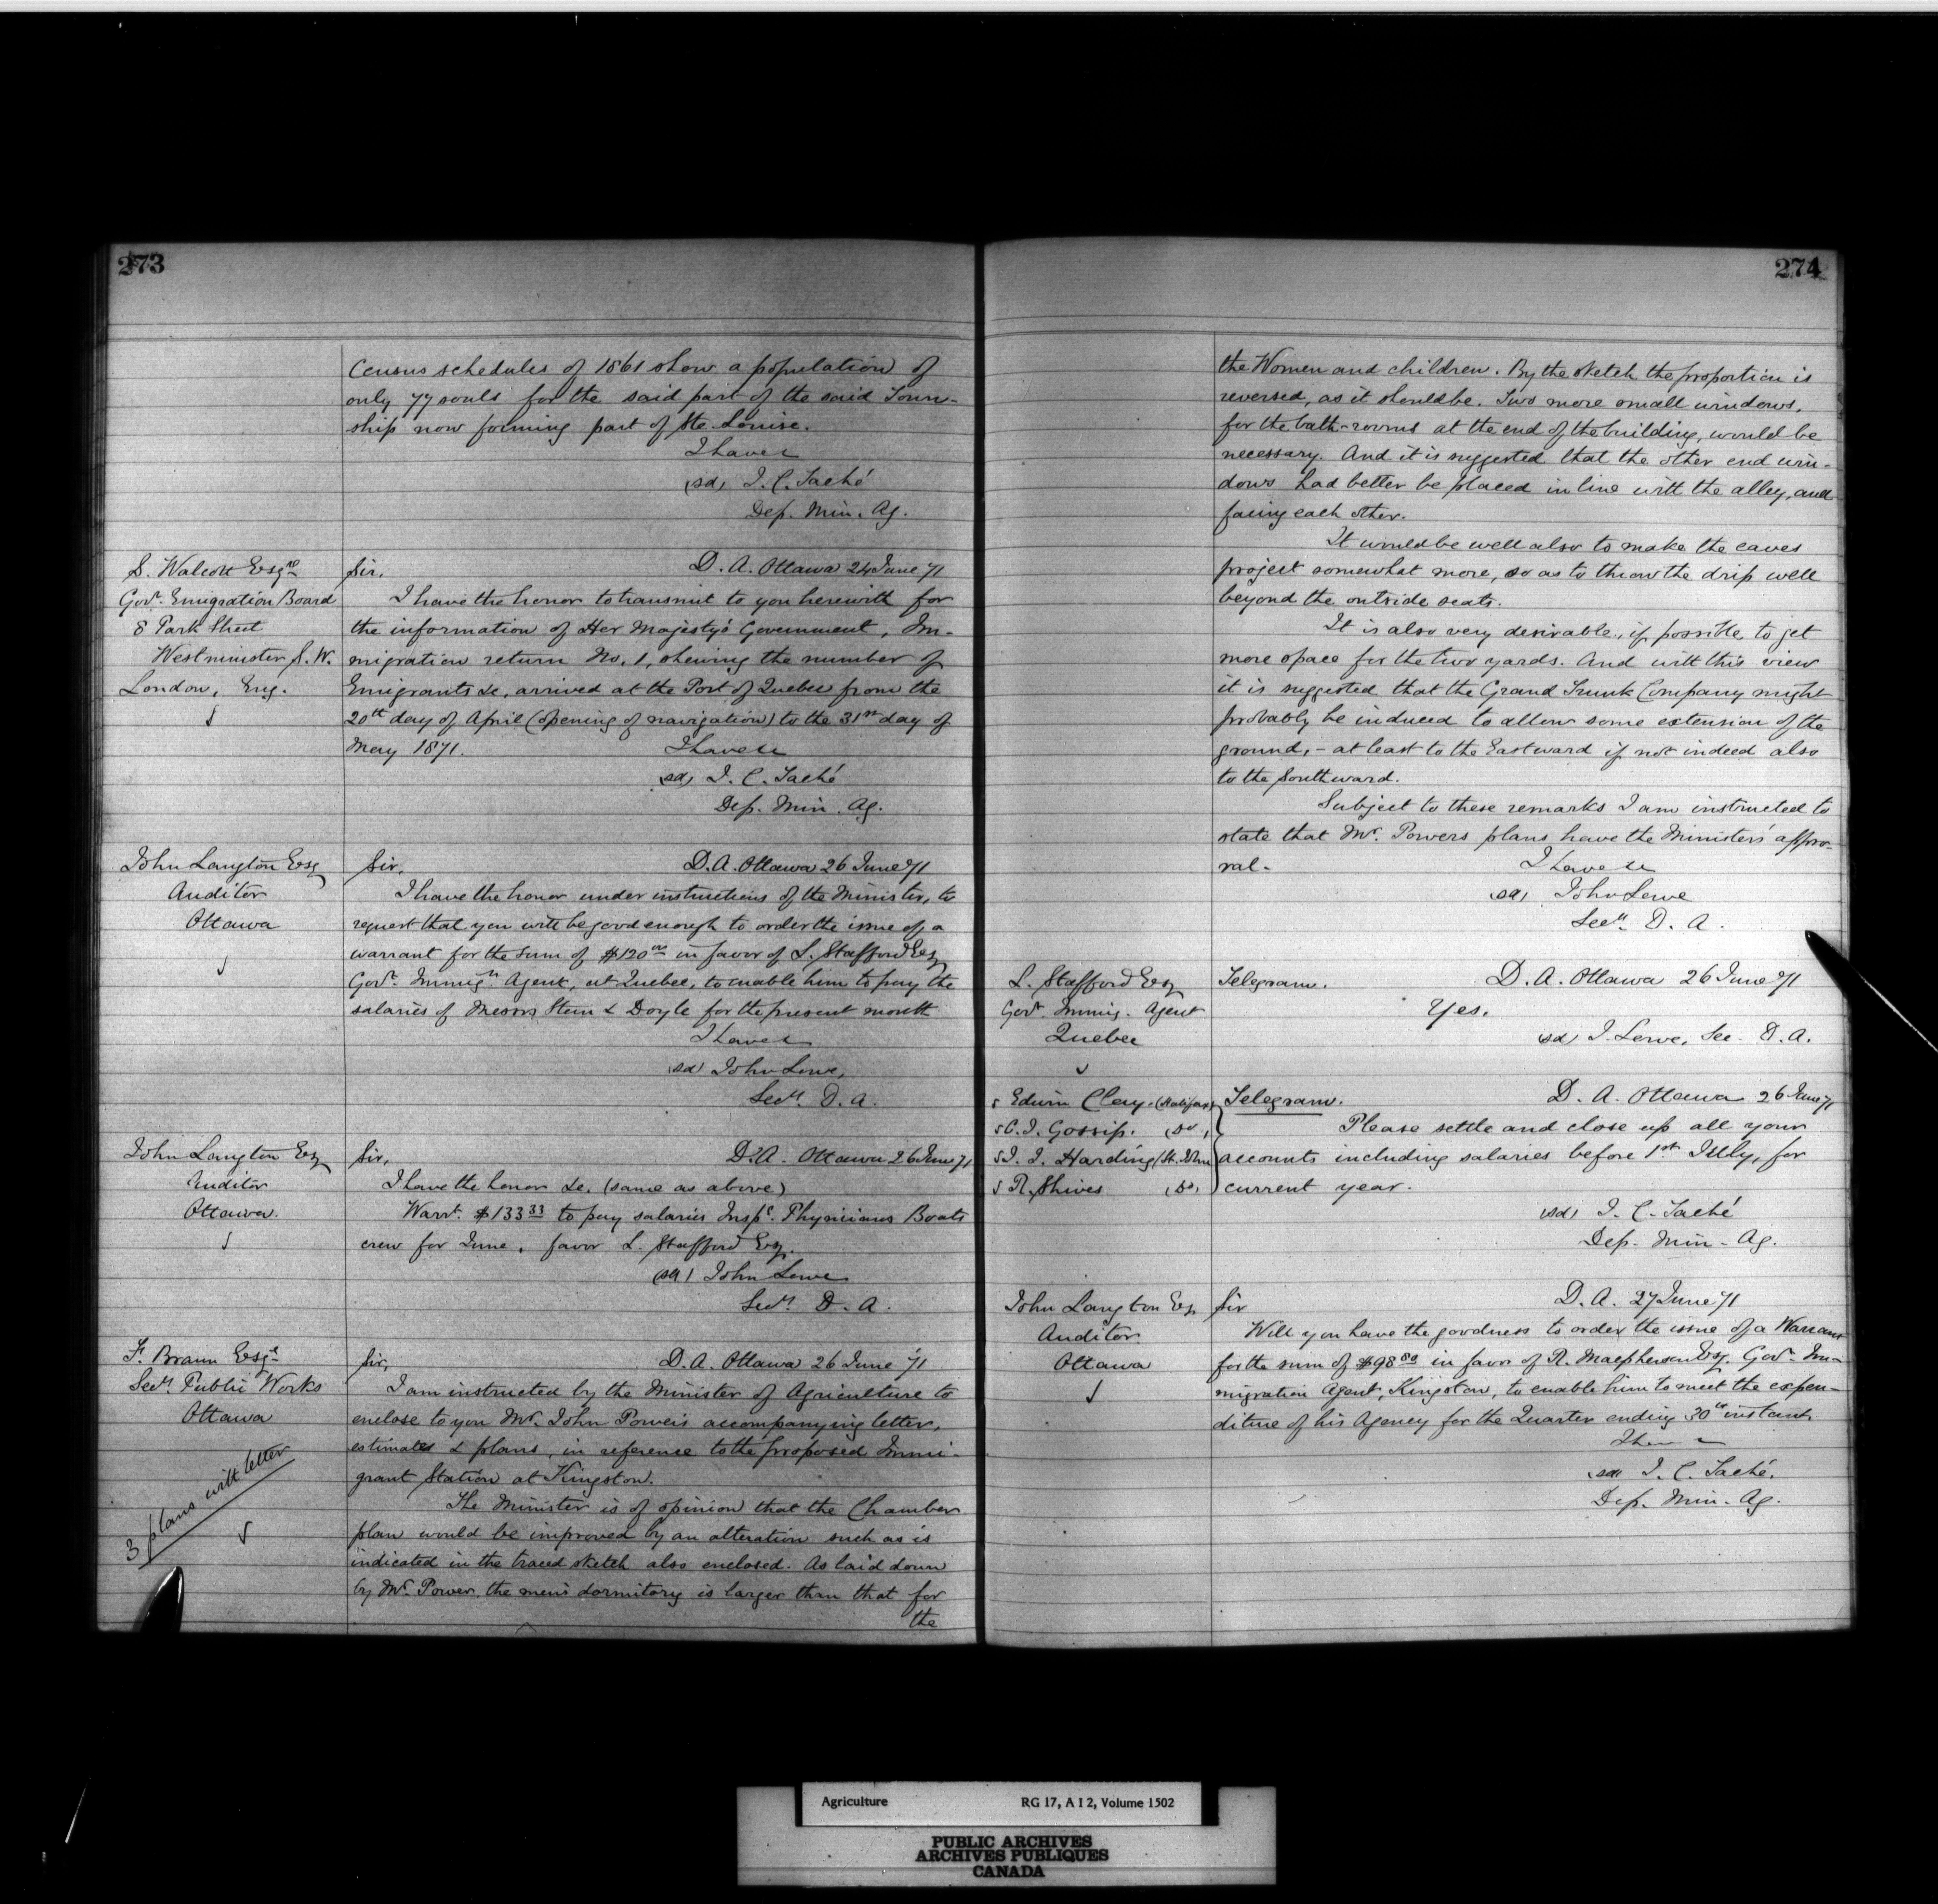 273
Census schedules of 1861 show a population of
only 77 souls for the said part of the said Town-
ship now forming part of Ste. Louise.
I have &c
(sd) J. C. Taché
Dep. Min. Ag.
S. Walcott Esqre
Govt. Emigration Board
8 Park Street
Westminister S.W.
London, Eng.
Sir, D. A. Ottawa 24 June 71
I have the honor to transmit to you herewith for
the information of Her Majesty's Government, Im-
migration return No. 1, shewing the number of
Emigrants &c, arrived at the Port of Quebec from the
20th day of April (opening of navigation) to the 31st day of
May 1871. I have &c
(sd) J. C. Taché
Dep. Min. Ag.
John Langton Esq
Auditor
Ottawa
Sir, D. A. Ottawa 26 June 71
I have the honor under instructions of the Minister, to
request that you will be good enough to order the issue of a
warrant for the sum of $120 00 in favor of L. Stafford Esq
Govt. Immign. Agent, at Quebec, to enable him to pay the
salaries of Messrs Stein & Doyle for the present month
I have &c
(sd) John Lowe,
Secy. D. A.
John Langton Esq
Auditor
Ottawa.
Sir, D. A. Ottawa 26 June 71
I have the honor &c. (same as above)
Warrt. $133 33 to pay salaries Inspg. Physicians Boats
crew for June, favor L. Stafford Esq.
(sd) John Lowe
Secy. D. A.
F. Braun Esqe
Secy. Public Works
Ottawa
3 plans with letter
Sir, D. A. Ottawa 26 June 71
I am instructed by the Minister of Agriculture to
enclose to you Mr. John Power's accompanying letter,
estimates & plans, in reference to the proposed Immi-
grant Station at Kingston.
The Minister is of opinion that the Chamber
plan would be improved by an alteration such as is
indicated in the traced sketch also enclosed. As laid down
by Mr. Power, the men's dormitory is larger than that for
the
274
the Women and children. By the sketch the proportion is
reversed, as it should be. Two more small windows,
for the bath-rooms at the end of the building, would be
necessary. And it is suggested that the other end win-
dows had better be placed in line with the alley, and
facing each other.
It would be well also to make the eaves
project somewhat more, so as to throw the drip well
beyond the outside seats.
It is also very desirable, if possible, to get
more space for the two yards. And with this view
it is suggested that the Grand Trunk Company might
probably be induced to allow some extension of the
ground, - at least to the Eastward if not indeed also
to the Southward.
Subject to these remarks I am instructed to
state that Mr. Powers plans have the Minister's appro-
val. I have &c
(sd) John Lowe
Secy. D. A.
L. Stafford Esq
Govt. Immig. Agent
Quebec
Telegram. D. A. Ottawa 26 June 71
Yes.
(sd) J. Lowe, Sec. D. A.
Edwin Clay. (Halifax)
C. J. Gossip. (Do)
J. J. Harding (St. John
R. Shives (Do)
Telegram. D. A. Ottawa 26 June 71
Please settle and close up all your
accounts including salaries before 1st July, for
current year.
(sd) J. C. Taché
Dep. Min. Ag.
John Langton Esq
Auditor
Ottawa
Sir D. A. 27 June 71
Will you have the goodness to order the issue of a Warrant
for the sum of $98 80 in favor of R. Macpherson Esq. Govt. Im-
migration Agent, Kingston, to enable him to meet the expen-
diture of his Agency for the Quarter ending 30th instant.
I have &c
(sd) J. C. Taché.
Dep. Min. Ag.
Agriculture RG 17, A I 2, Volume 1502
PUBLIC ARCHIVES
ARCHIVES PUBLIQUES
CANADA